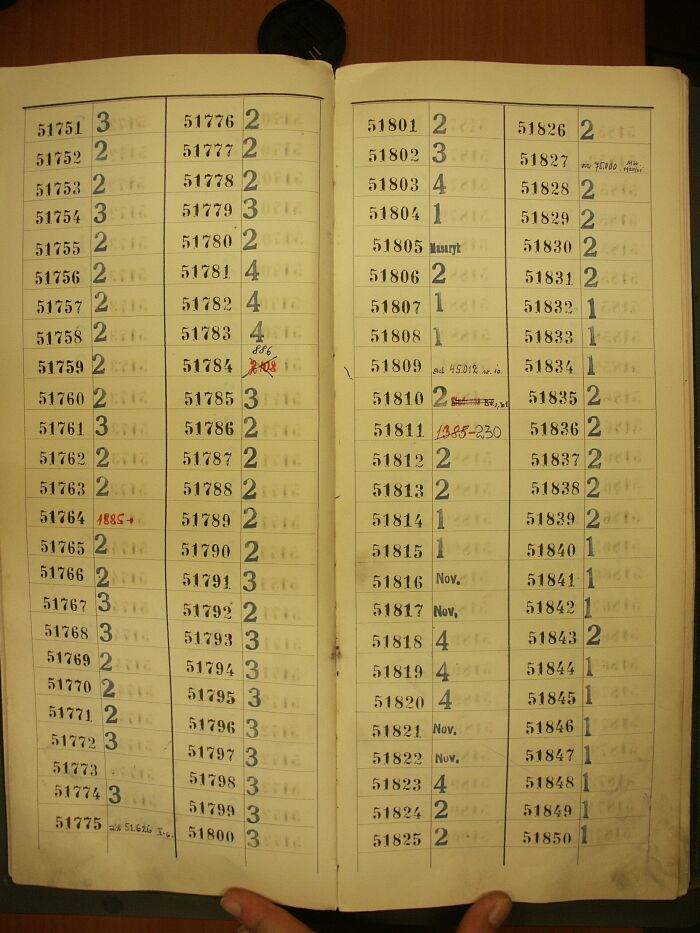 51751 3
51752 2
51753 2
51754 3
51755 2
51756 2
51757 2
51758 2
51759 2
51760 2
51761 3
51762 2
51763 2
51764 1885-
51765 2
51766 2
51767 3
51768 3
51769 2
51770 2
51771 2
51772 3
51773
51774 3
51775 51.626
51776 2
51777 2
51778 2
51779 3
51780 2
51781 4
51782 4
51783 4
886
51784 2108
51785 3
51786 2
51787 2
51788 2
51789 2
51790 2
51791 3
51792 2
51793 3
51794 3
51795 3
51796 3
51797 3
51798 3
51799 3
51800 3
51801 2
51802 3
51803 4
51804 1
51805 Masaryk
51806 2
51807 1
51808 1
51809 45.012
51810 2
51811 1385-230
51812 2
51813 2
51814 1
51815 1
51816 Nov.
51817 Nov.
51818 4
51819 4
51820 4
51821 Nov.
51822 Nov.
51823 4
51824 2
51825 2
51826 2
51827 75.000
51828 2
51829 2
51830 2
51831 2
51832 1
51833 1
51834 1
51835 2
51836 2
51837 2
51838 2
51839 2
51840 1
51841 1
51842 1
51843 2
51844 1
51845 1
51846 1
51847 1
51848 1
51849 1
51850 1